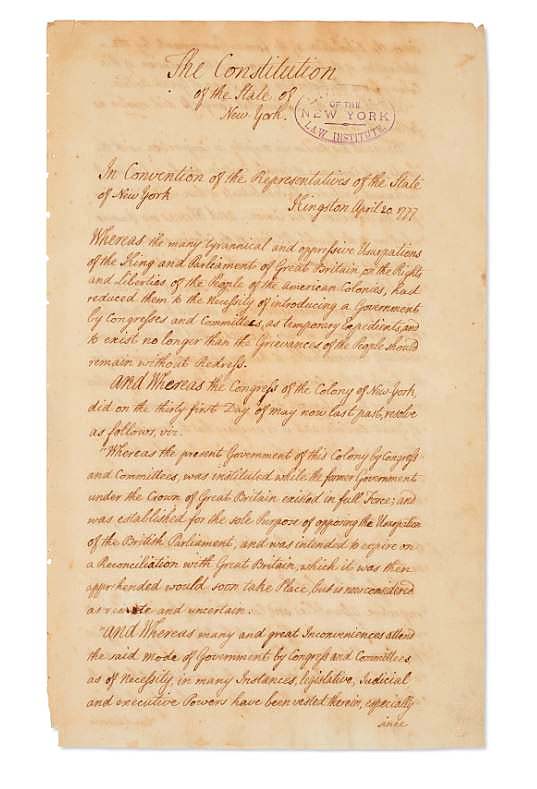 The Constitution
of the State of
New York.
OF THE
NEW YORK
LAW INSTITUTE
In Convention of the Representatives of the State
of New York
Kingston April 20. 1777
Whereas the many tyrannical and oppressive Usurpations
of the King and Parliament of Great Britain, on the Rights
and Liberties of the People of the American Colonies, had
reduced them to the Necessity of introducing a Government
by Congresses and Committees, as temporary Expedients, and
to exist no longer than the Grievances of the People should
remain without Redress.
And Whereas the Congress of the Colony of New York,
did on the thirty first Day of may now last past, resolve
as follows, viz.
"Whereas the present Government of this Colony by Congress
and Committees, was instituted while the former Government
under the Crown of Great Britain existed in full Force; and
was established for the sole Purpose of opposing the Usurpation
of the British Parliament, and was intended to expire on
a Reconciliation with Great Britain, which it was then
apprehended would soon take Place, but is now considered
as remote and uncertain.
"And Whereas many and great Inconveniences attend
the said mode of Government by Congress and Committees,
as of Necessity, in many Instances, legislative, Judicial
and executive Powers have been vested therein, especially
since